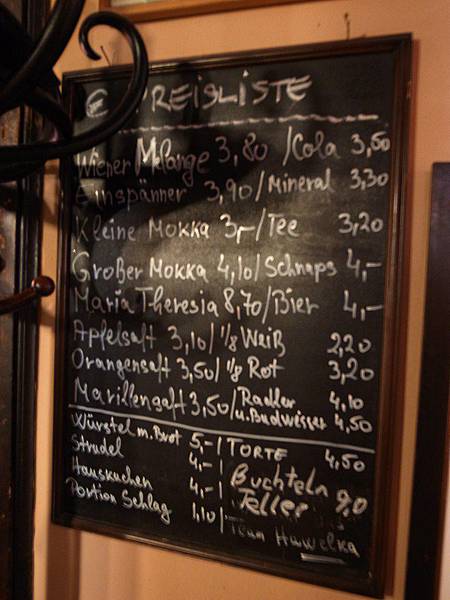 € PREISLISTE
Wiener Melange 3,80 / Cola 3,50
Einspänner 3,90 / Mineral 3,30
Kleine Mokka 3,- / Tee 3,20
Großer Mokka 4,10 / Schnaps 4,-
Maria Theresia 8,70 / Bier 4,-
Apfelsaft 3,10 / 1/8 Weiß 2,20
Orangensaft 3,50 / 1/8 Rot 3,20
Marillensaft 3,50 / Radler 4,10
u. Budweiser 4,50
Würstel m. Brot 5,- | TORTE 4,50
Strudel 4,- | Buchteln
Hauskuchen 4,- | Teller 9,0
Portion Schlag 1,10 / Team Hawelka